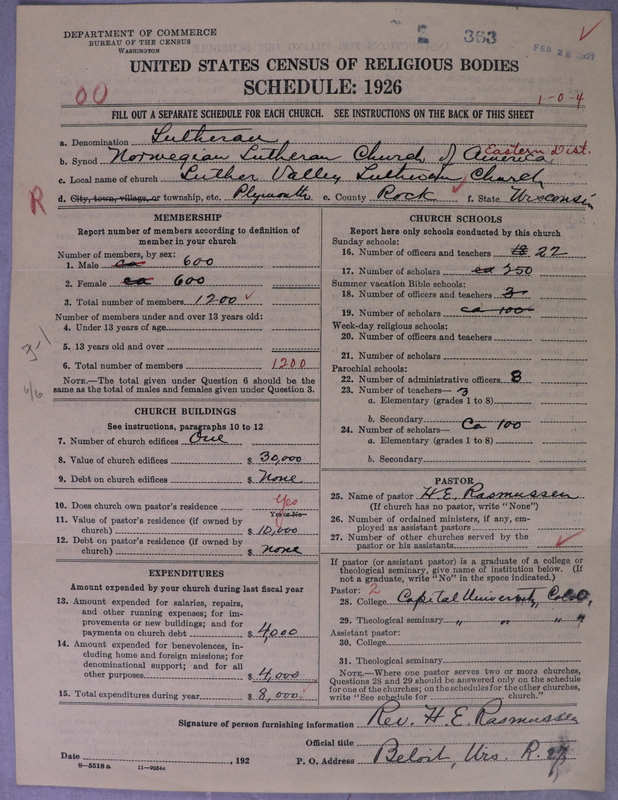 DEPARTMENT OF COMMERCE
BUREAU OF THE CENSUS
WASHINGTON
363
FEB 28
UNITED STATES CENSUS OF RELIGIOUS BODIES
SCHEDULE: 1926
00
1-0-4
FILL OUT A SEPARATE SCHEDULE FOR EACH CHURCH. SEE INSTRUCTIONS ON THE BACK OF THIS SHEET
a. Denomination Lutheran
b. Synod Norwegian Lutheran Church of America, Eastern Dist.
c. Local name of church Luther Valley Lutheran Church
d. City, town, village, or township, etc. Plymouth e. County Rock f. State Wisconsin
R
MEMBERSHIP
Report number of members according to definition of member in your church
Number of members, by sex:
1. Male ca 600
2. Female ca 600
3. Total number of members 1200
Number of members under and over 13 years old:
4. Under 13 years of age
5. 13 years old and over
6. Total number of members 1200
NOTE.—The total given under Question 6 should be the same as the total of males and females given under Question 3.
CHURCH BUILDINGS
See instructions, paragraphs 10 to 12
7. Number of church edifices One
8. Value of church edifices $ 30,000
9. Debt on church edifices $ None
10. Does church own pastor's residence Yes
Yes or No
11. Value of pastor's residence (if owned by church) $ 10,000
12. Debt on pastor's residence (if owned by church) $ none
EXPENDITURES
Amount expended by your church during last fiscal year
13. Amount expended for salaries, repairs, and other running expenses; for improvements or new buildings; and for payments on church debt $ 4,000
14. Amount expended for benevolences, including home and foreign missions; for denominational support; and for all other purposes $ 4,000
15. Total expenditures during year $ 8,000
CHURCH SCHOOLS
Report here only schools conducted by this church
Sunday schools:
16. Number of officers and teachers 18 22
17. Number of scholars ca 250
Summer vacation Bible schools:
18. Number of officers and teachers 3
19. Number of scholars ca 100
Week-day religious schools:
20. Number of officers and teachers
21. Number of scholars
Parochial schools:
22. Number of administrative officers 3
23. Number of teachers— 3
a. Elementary (grades 1 to 8)
b. Secondary
24. Number of scholars— Ca 100
a. Elementary (grades 1 to 8)
b. Secondary
PASTOR
25. Name of pastor H. E. Rasmussen
(If church has no pastor, write "None")
26. Number of ordained ministers, if any, employed as assistant pastors
27. Number of other churches served by the pastor or his assistants
If pastor (or assistant pastor) is a graduate of a college or theological seminary, give name of institution below. (If not a graduate, write "No" in the space indicated.)
Pastor: 2
28. College Capital University, Col. O.
29. Theological seminary " " " "
Assistant pastor:
30. College
31. Theological seminary
NOTE.—Where one pastor serves two or more churches, Questions 28 and 29 should be answered only on the schedule for one of the churches; on the schedules for the other churches, write "See schedule for church."
Signature of person furnishing information Rev. H. E. Rasmussen
Official title
Date , 192 P. O. Address Beloit, Wis. R. 27
8—5518a 11—9054